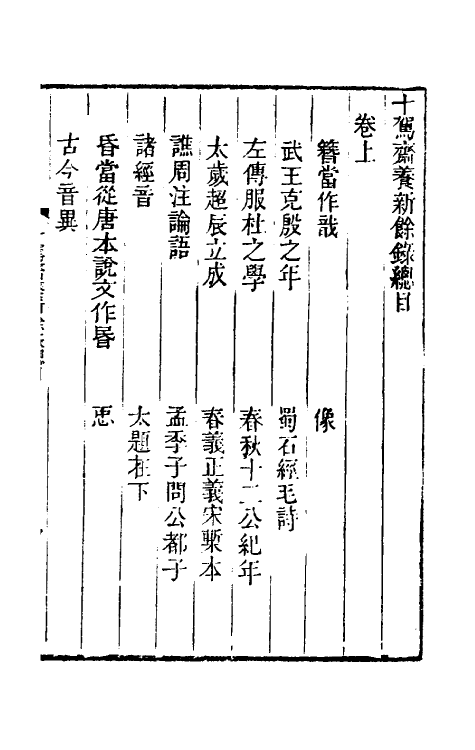 十駕齋養新餘錄總目
卷上
簪當作哉　像
武王克殷之年　蜀石經毛詩
左傳服杜之學　春秋十二公紀年
太歲超辰立成　春義正義宋槧本
譙周注論語　孟季子問公都子
諸經音　太題在下
昏當從唐本說文作昬　恧
古今音異